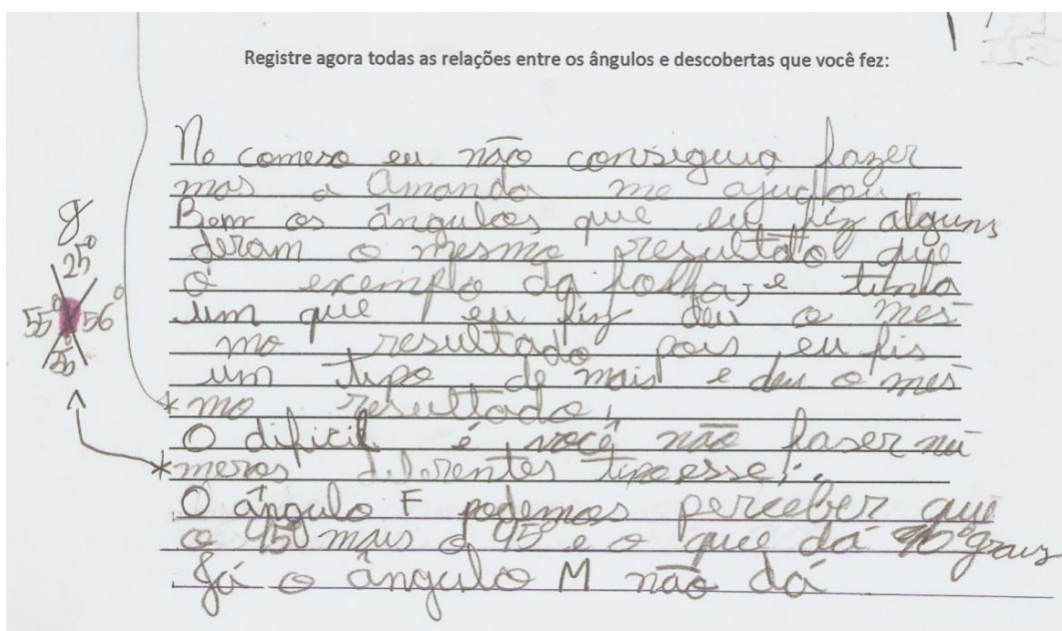 Registre agora todas as relações entre os ângulos e descobertas que você fez:
No comeso eu não consiguia fazer
mas a Amanda me ajudou
Bom os ângulos que eu fiz alguns
deram o mesmo resultado que
o exemplo da folha, e tinha
um que eu fiz deu o mes
mo resultado pois eu fis
um tipo de mais e deu o mes
* mo resultado,
O dificil é você não faser nú
* meros diferentes tipo esse:
O ângulo F podemos perceber que
o 45º mais o 45º e o que dá 90 graus
Já o ângulo M não dá
g
25º
55º 56º